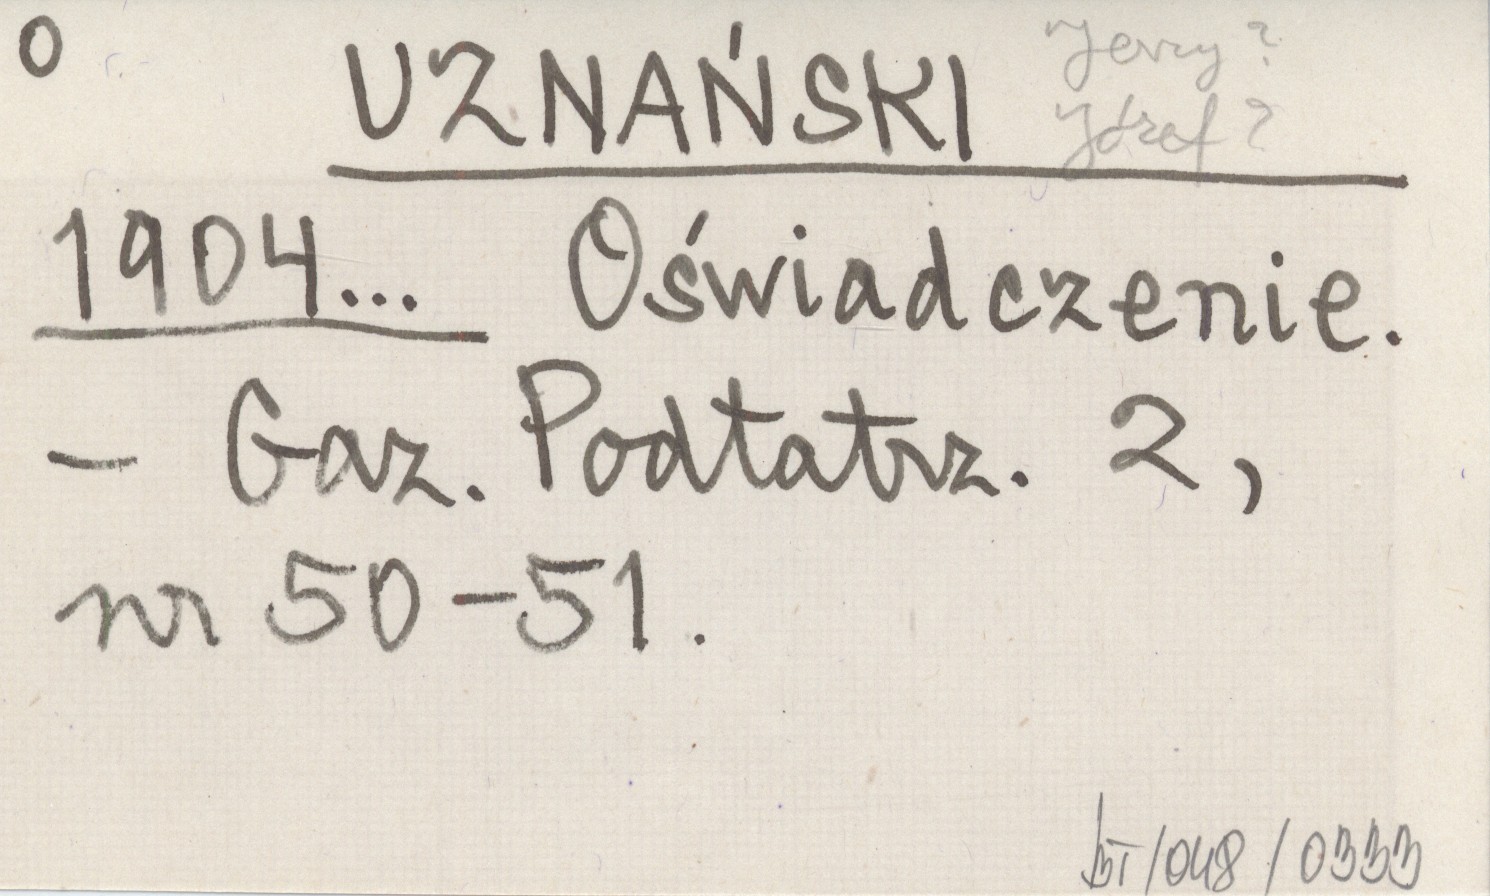 O
UZNAŃSKI
Jerzy?
Józef?
1904... Oświadczenie.
- Gaz. Podtatrz. 2,
nr 50-51.
BT/048/0333